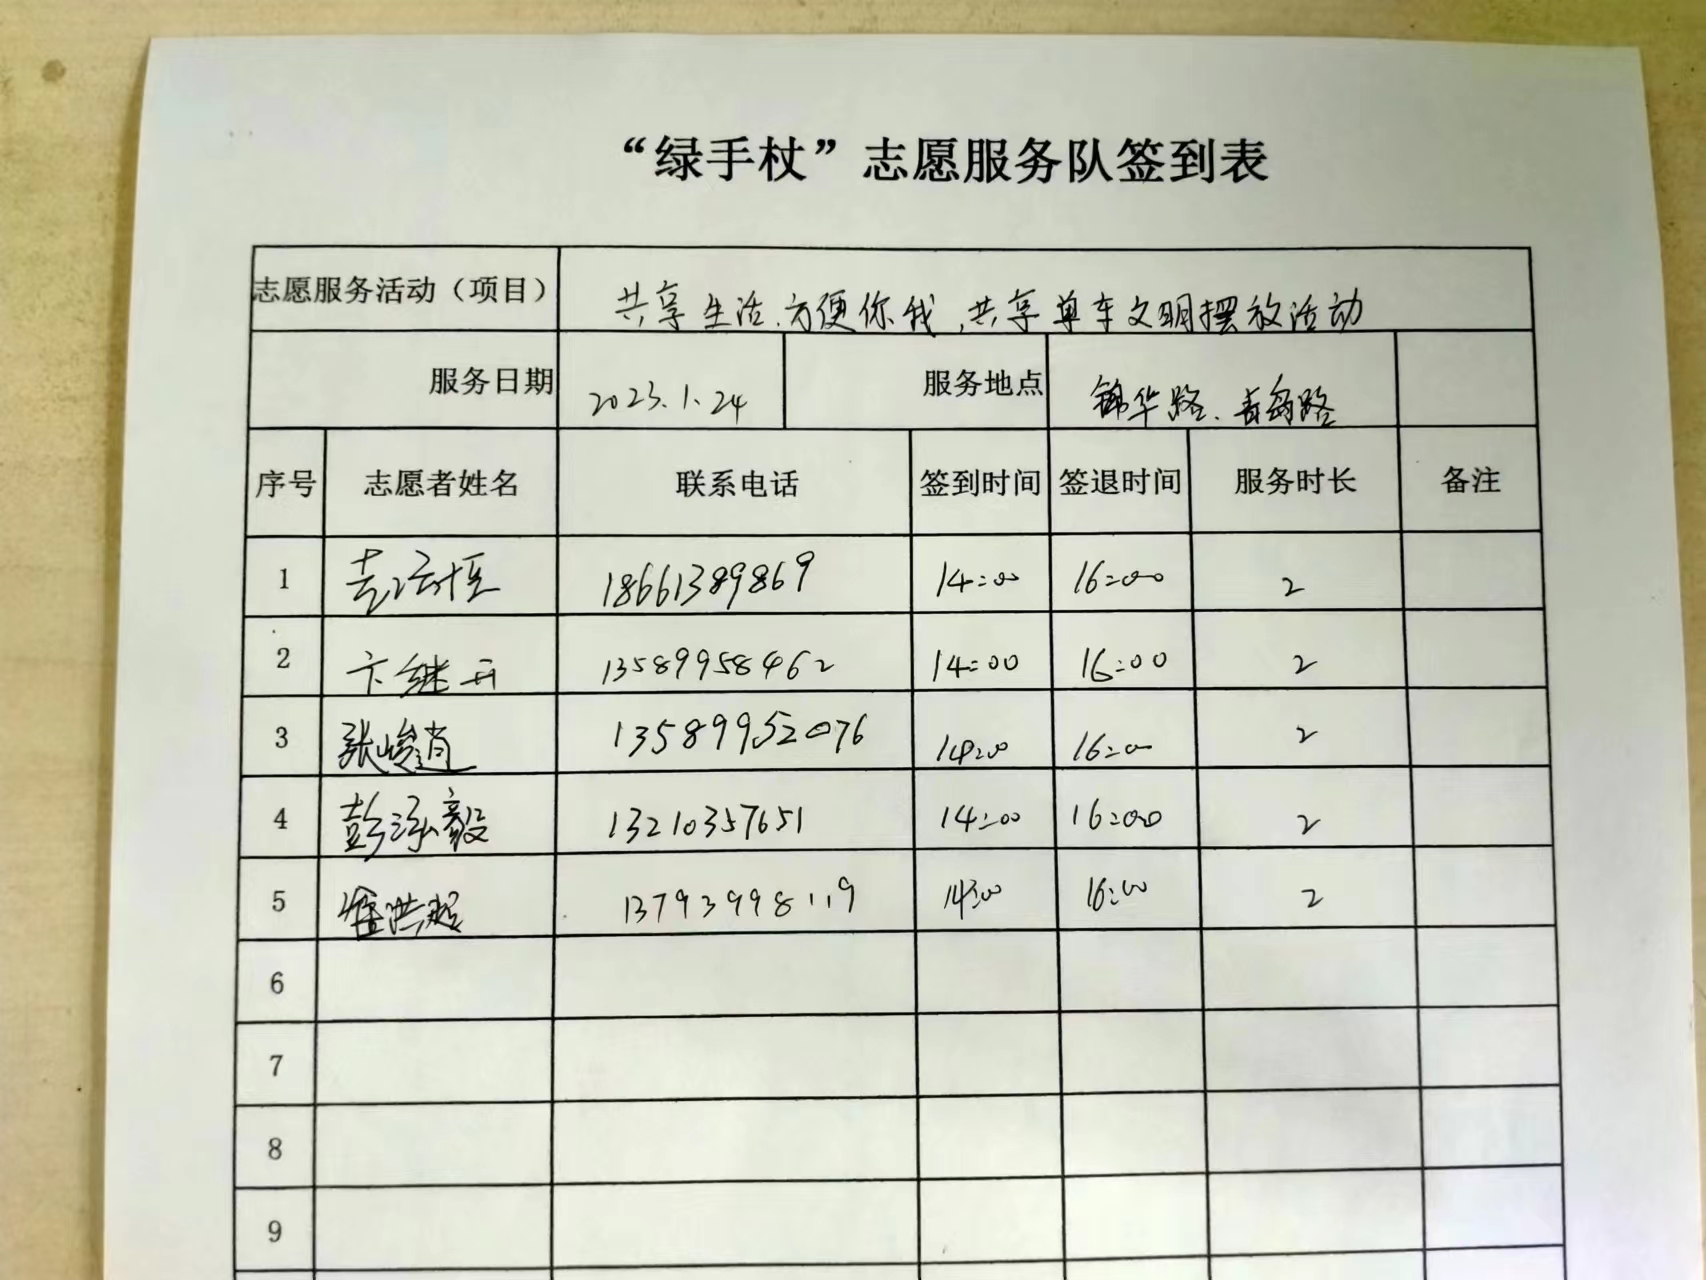 “绿手杖”志愿服务队签到表
志愿服务活动（项目） 共享生活、方便你我,共享单车文明摆放活动
服务日期 2023.1.24 服务地点 锦华路、青岛路
序号 志愿者姓名 联系电话 签到时间 签退时间 服务时长 备注
1 18661389869 14:00 16:00 2
2 卞继开 13589958462 14:00 16:00 2
3 张峻逍 13589952076 14:00 16:00 2
4 彭泓毅 13210357651 14:00 16:00 2
5 洪超 13793998119 14:00 16:00 2
6
7
8
9